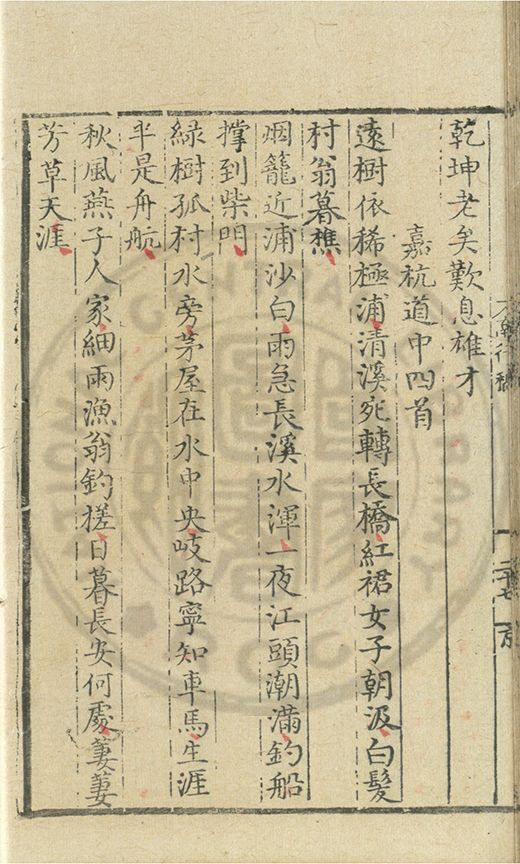 乾坤老矣歎息雄才
嘉杭道中四首
遠樹依稀極浦清溪宛轉長橋紅裙女子朝汲白髮
村翁暮樵
烟籠近浦沙白雨急長溪水渾一夜江頭潮滿釣船
撑到柴門
綠樹孤村水旁茅屋在水中央岐路寧知車馬生涯
半是舟航
秋風燕子人家細雨漁翁釣槎日暮長安何處萋萋
芳草天涯